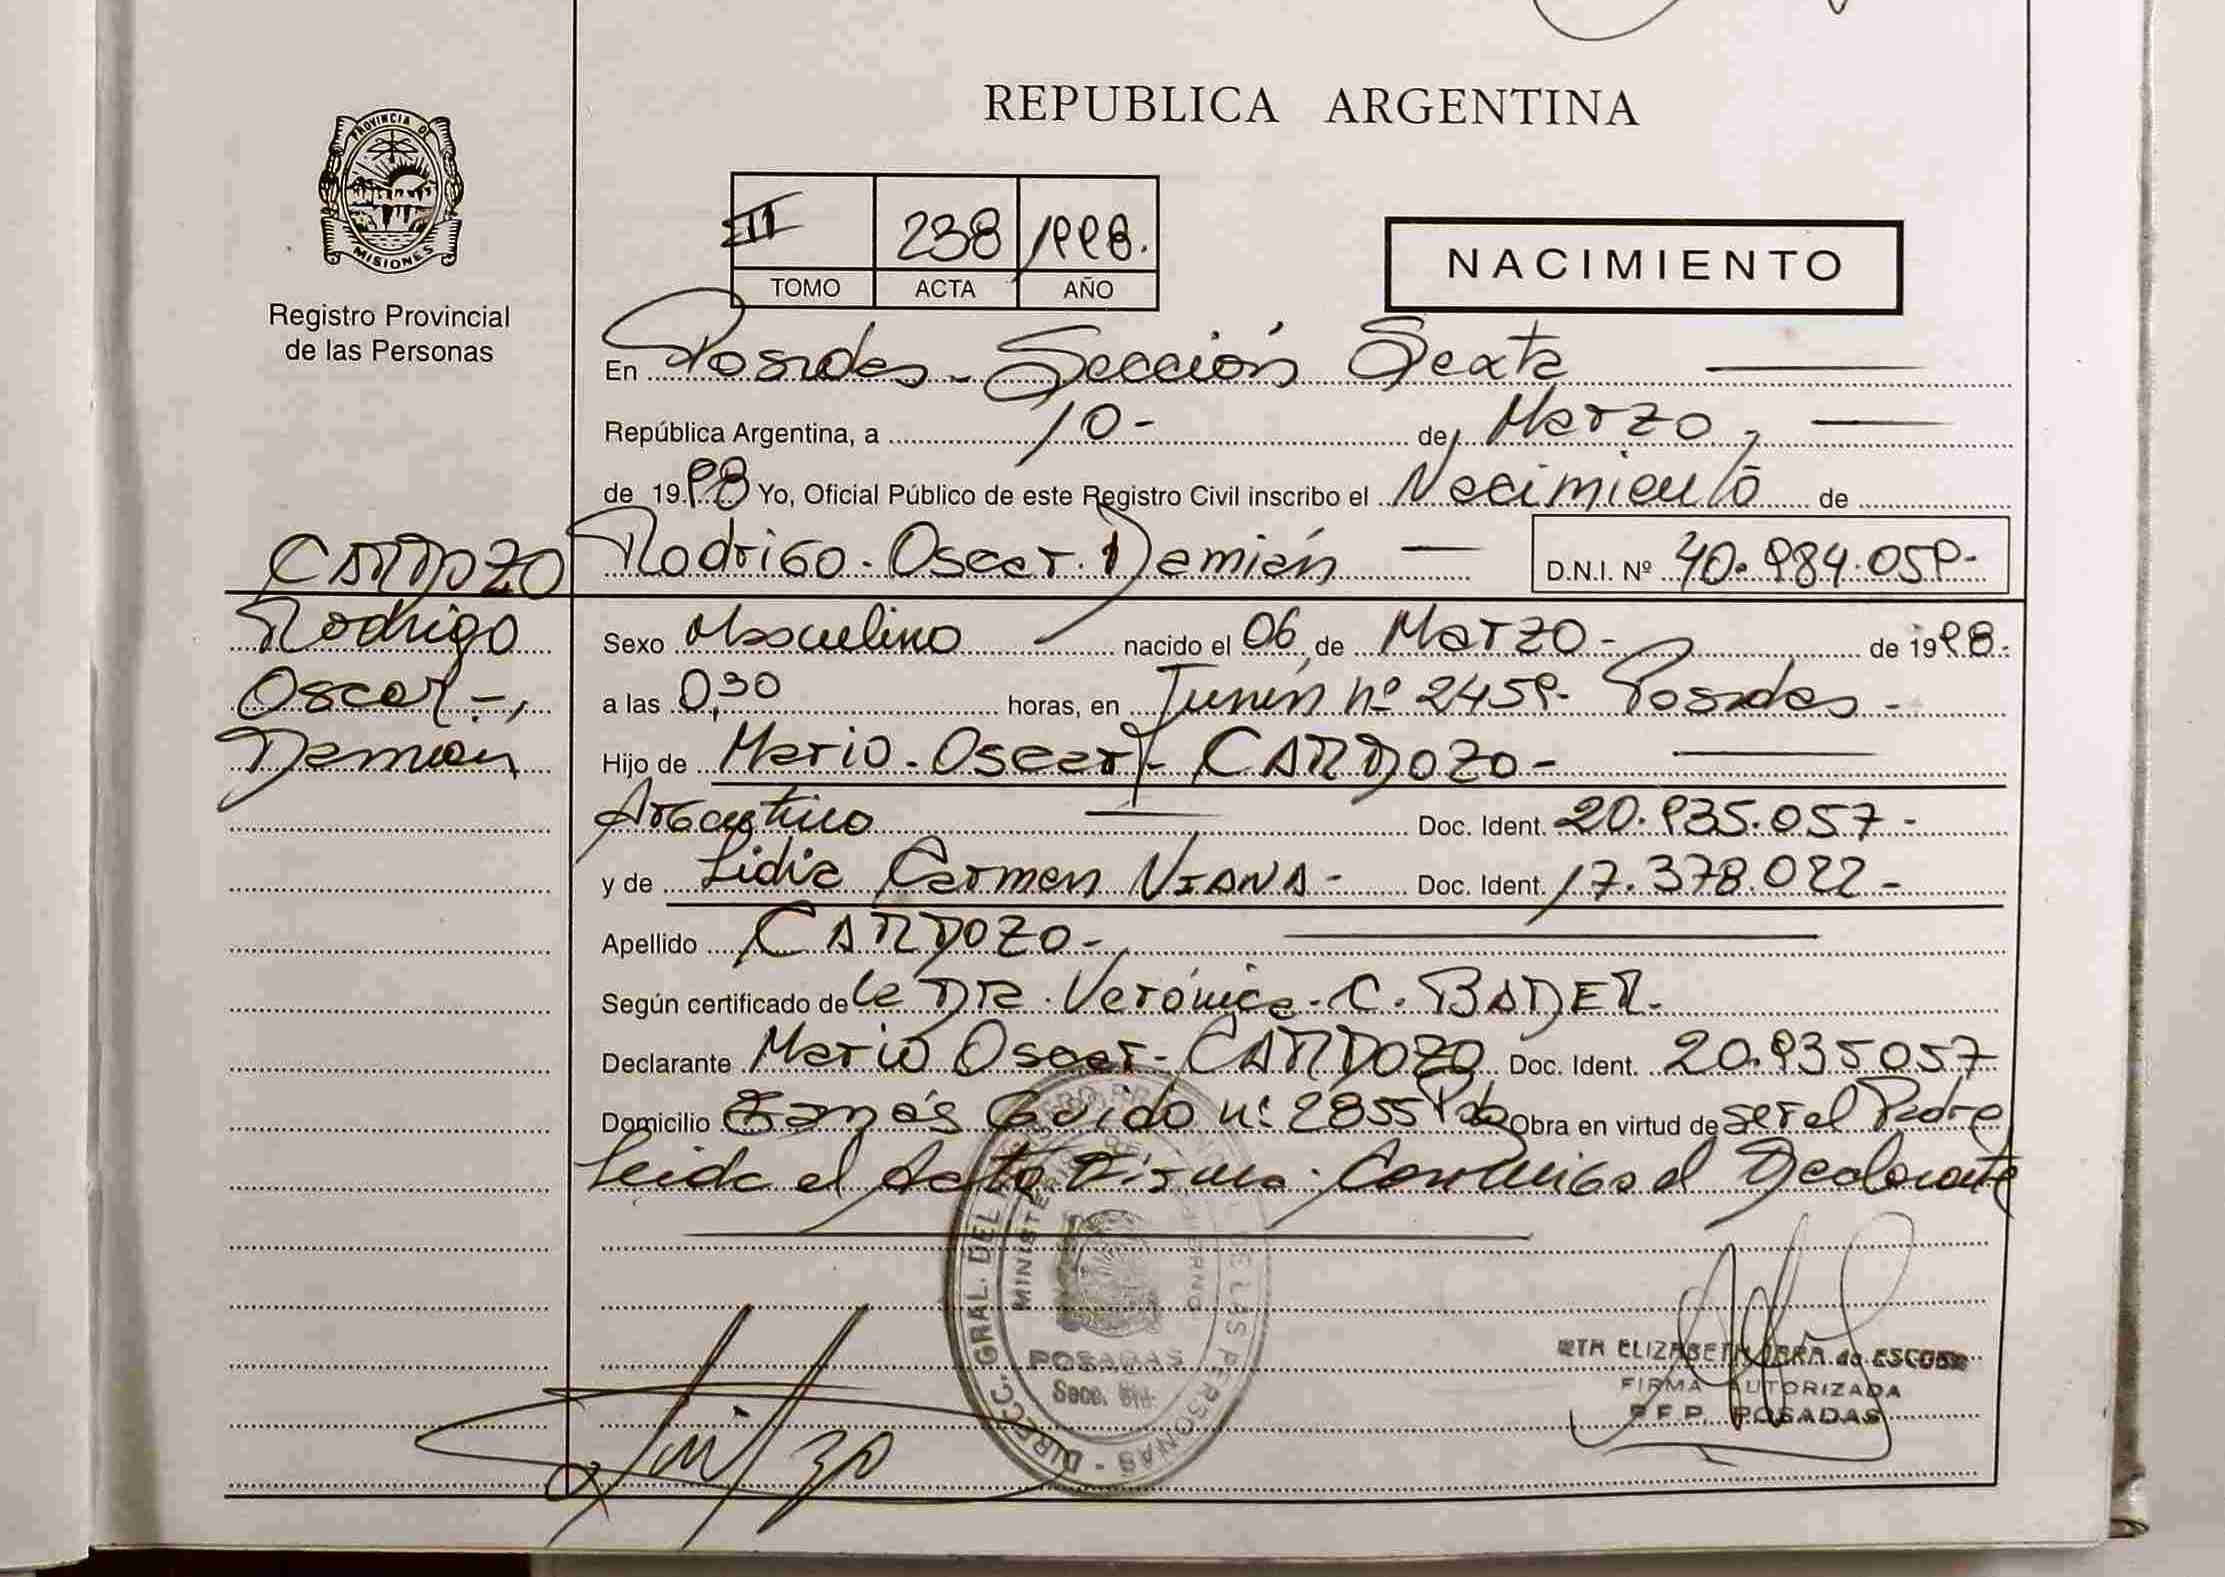 REPUBLICA ARGENTINA
PROVINCIA DE
MISIONES
Registro Provincial
de las Personas
II 238 1998.
TOMO ACTA AÑO
NACIMIENTO
En Posadas - Sección Sexta
República Argentina, a 10- de Marzo,
de 1998 Yo, Oficial Público de este Registro Civil inscribo el Nacimiento de
Rodrigo - Oscar - Damián D.N.I. Nº 40.984.059-
CARDOZO
Rodrigo
Oscar -,
Damian
Sexo Masculino nacido el 06 de Marzo - de 1998.
a las 0,30 horas, en Junín nº 2459- Posadas -
Hijo de Mario - Oscar - CARDOZO -
Argentino Doc. Ident. 20.935.057 -
y de Lidia Carmen VIANA - Doc. Ident. 17.378.022 -
Apellido CARDOZO -
Según certificado de la DRa. Verónica - C. BADER.
Declarante Mario Oscar - CARDOZO Doc. Ident. 20.935057
Domicilio Tomás Guido nº 2855 Pdas Obra en virtud de ser el Padre
Leida el Acta Firma Conmigo el Declarante
DIRECC. GRAL. DEL DE LAS PERSONAS
POSADAS
Secc. 6ta.
ELIZABETH de
FIRMA AUTORIZADA
POSADAS